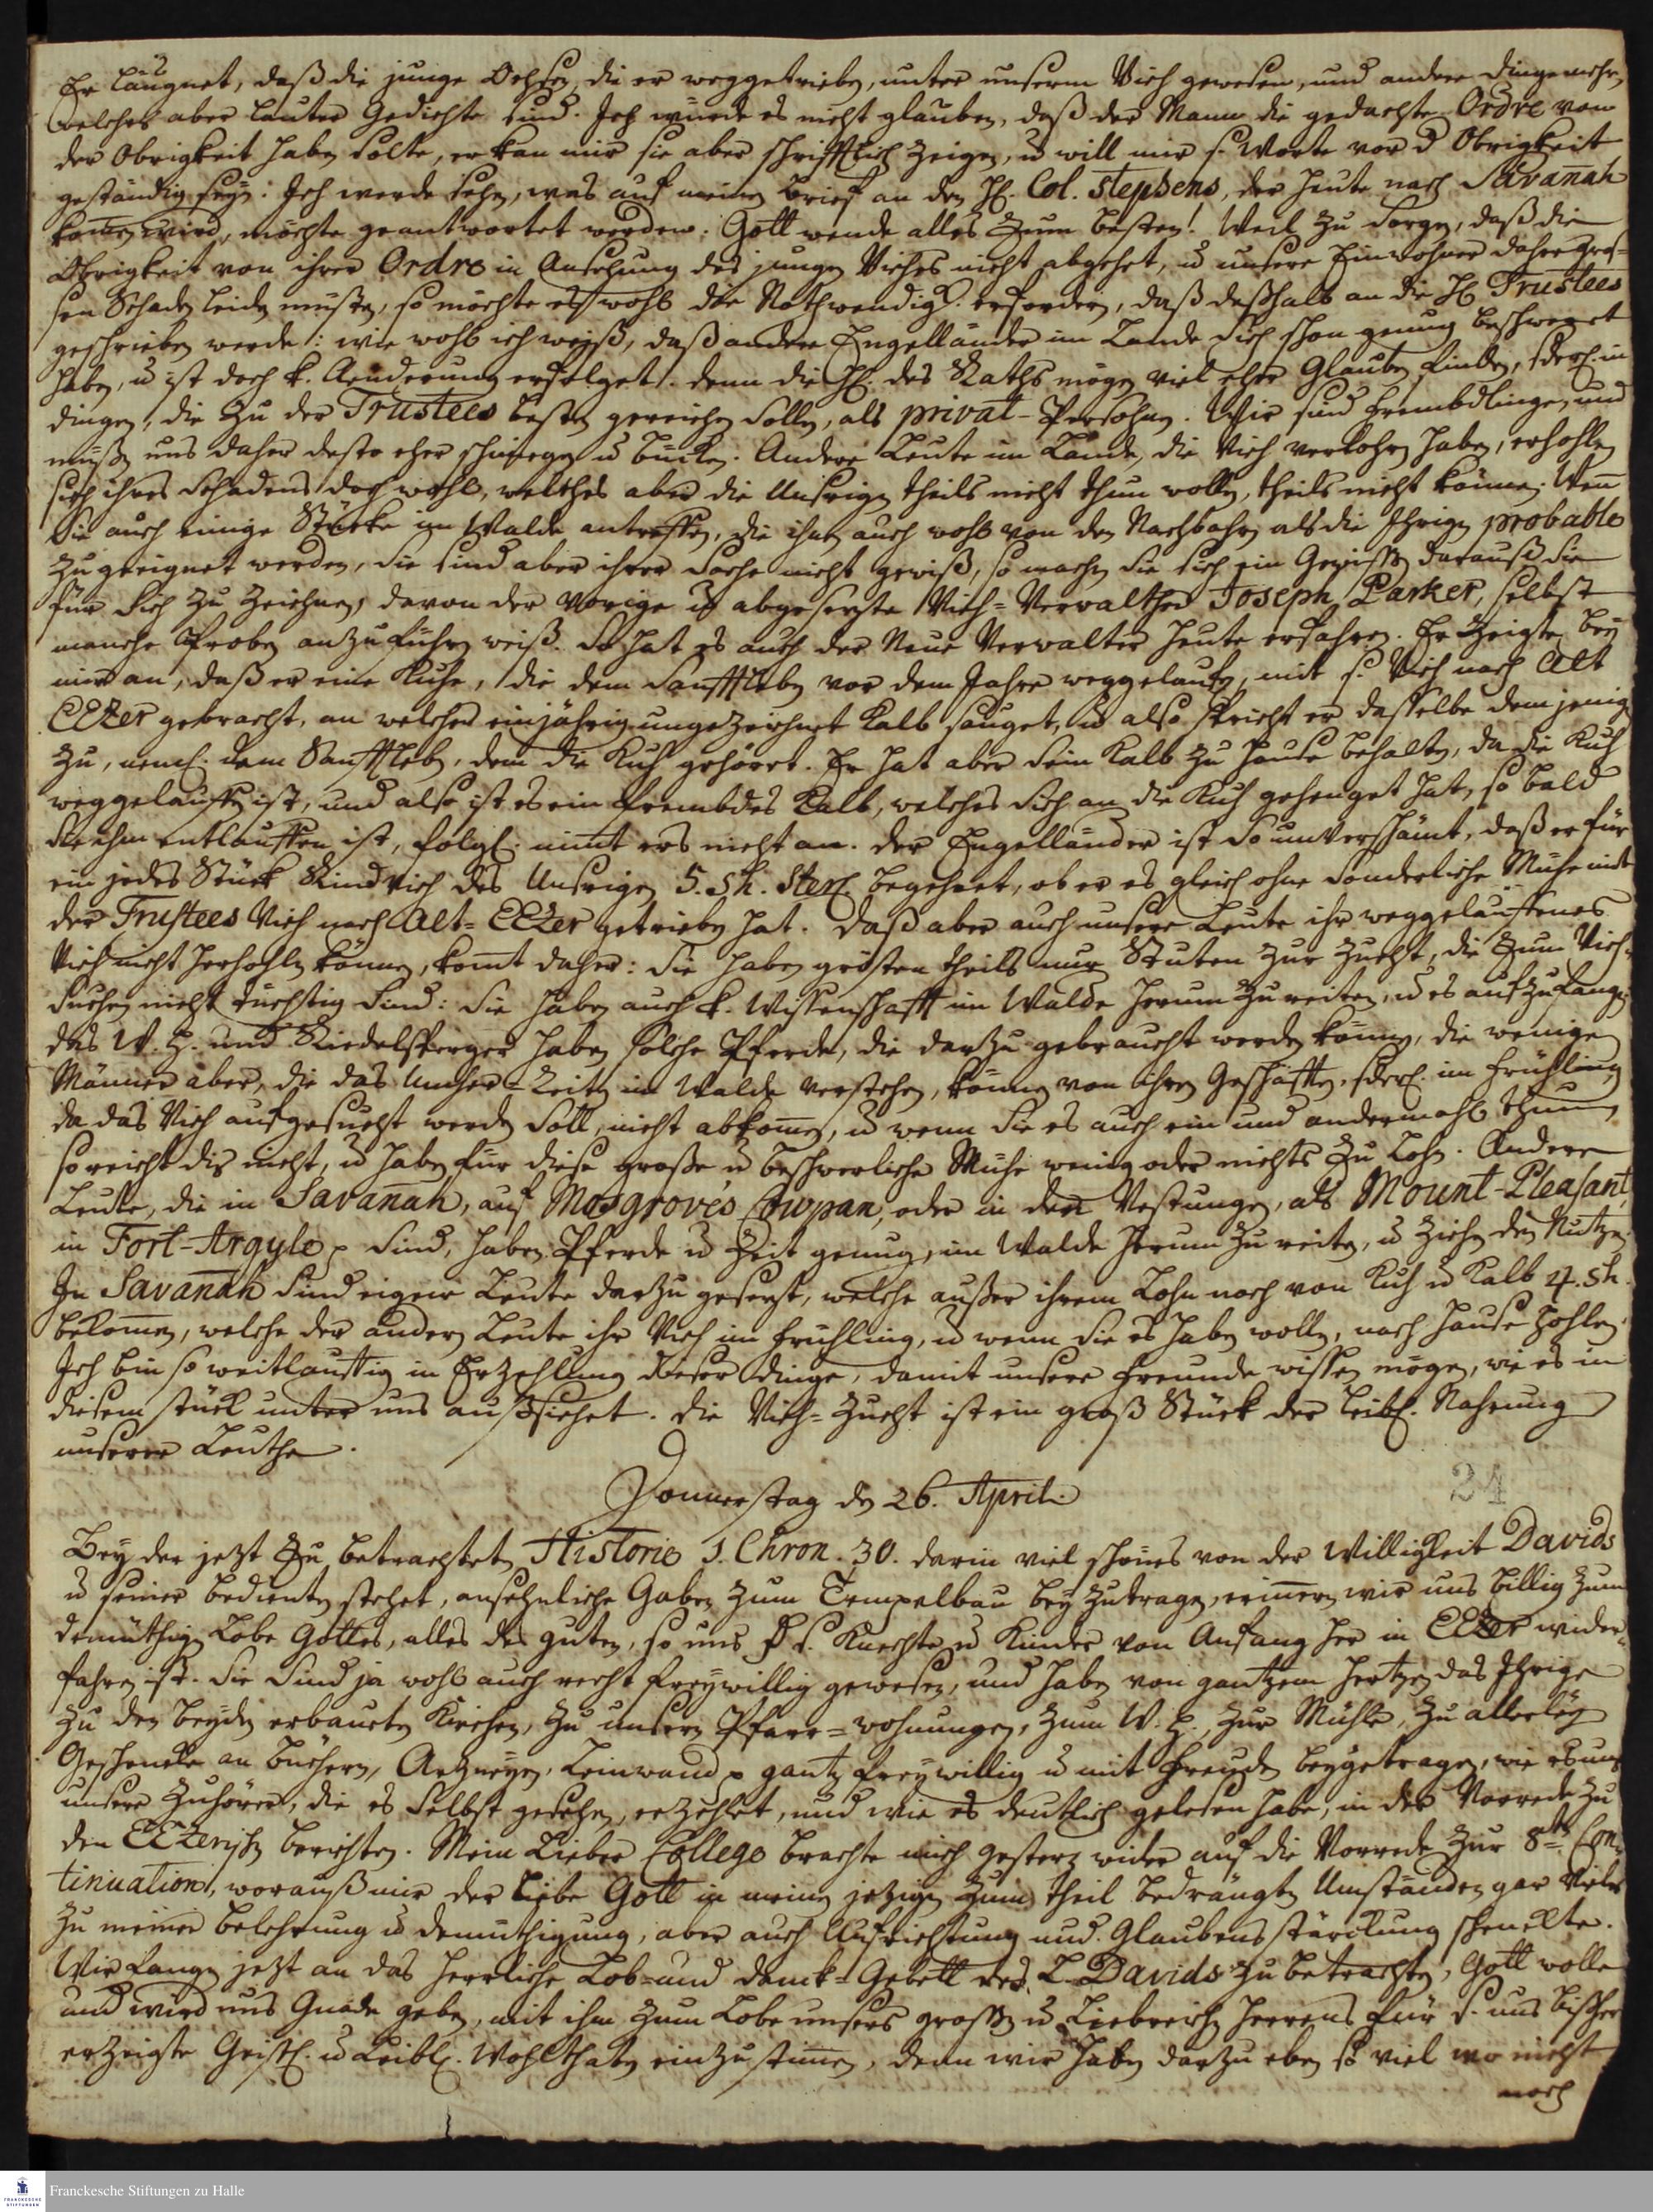 Er läugnet, daß die junge Ochsen, die er weggetrieben, unter unserm Vieh gewesen, und andere Dinge mehr,
welches aber lauter Gedichte sind. Ich würde es nicht glauben, daß der Mann die gedachte Ordre von
der Obrigkeit haben solte, er kan mir sie aber schrifftlich zeigen, u. will mir s. Worte vor d. Obrigkeit
geständig seyn: Ich werde sehen, was auf meinen Brief an den H. Col. Stephens, der heute nach Savanah
komen wird, möchte geantwortet werden. Gott wende alles zum besten! Weil zu sorgen, daß die
Obrigkeit von ihrer Ordre in Ansehung des jungen Viehes nicht abgehet, u. unsere Einwohner daher gros-
sen Schaden leiden müsten, so möchte es wohl die Nothwendigk. erfordern, daß deßhalb an die H. Trustees
geschrieben werde: wie wohl ich weiß, daß andere Engelländer im Lande sich schon genung beschweret
haben, u. ist doch k. Aenderung erfolget. denn die H. des Raths mögen viel eher Glauben finden, sderl. in
dingen, die zu der Trustees besten gereichen sollen, als privat-Persohnen. Wir sind Frembdlinge, und
müssen uns daher desto eher schmiegen u. bücken. Andere Leute im Lande, die Vieh verlohren haben, erhohlen
sich ihres Schadens doch wohl, welches aber die Unsrigen theils nicht thun wollen, theils nicht können. Wenn
sie auch einige Stücke im Walde antreffen, die ihnen auch wohl von den Nachbahrn als die Ihrigen probable
zugeeignet werden, sie sind aber ihrer Sache nicht gewiß, so machen sie sich ein Gewissen darauß, sie
für sich zu zeichnen, davon der vorige u. abgesetzte Vieh-Verwalther Joseph Parker, selbst
manche Proben anzuführen weiß. So hat es auch der Neue Verwalter heute erfahren. Er zeigte bey
mir an, daß er eine Kuhe, die dem Sanfftleben vor dem Jahre weggelaufen, mit s. Vieh nach Alt
EEzer gebracht, an welcher ein jährig ungezeichnet Kalb sauget, u. also spricht er dasselbe demjenigen
zu, neml. dem Sanfftleben, dem die Kuh gehöret. Er hat aber sein Kalb zu Hause behalten, da die Kuh
weggelauffen ist, und also ist es ein frembdes Kalb, welches sich an die Kuh gehenget hat, so bald
sie ihm entlauffen ist, folgl. nimt ers nicht an. der Engelländer ist so unverschämt, daß er für
ein jedes Stück Rindvieh des Unsrigen 5. sh. Sterl. begehret, ob er es gleich ohne sonderliche Mühe mit
der Trustees Vieh nach Alt-EEzer getrieben hat. Daß aber auch unsere Leute ihr weggelauffenes
Vieh nicht herhohlen können, komt daher: sie haben grösten theils nur Stuten zur Zucht, die zum Vieh-
suchen nicht tüchtig sind: sie haben auch k. Wissenschafft im Walde herum zu reiten, u. es aufzufangen.
das W. H. und Riedelsperger haben solche Pferde, die darzu gebraucht werden können, die wenigen
Männer aber, die das Umher-Reiten im Walde verstehen, können von ihren Geschäfften, sderl. im Frühling,
da das Vieh aufgesucht werden soll, nicht abkomen, u. wenn sie es auch ein und andermahl thun,
so reicht dis nicht, u. haben für diese große u. beschwerliche Mühe wenig oder nichts zu Lohn. Andere
Leute, die in Savanah, auf Mosgroves Cowpan, oder in den Vestungen, als Mount-Pleasant,
in Fort-Argyle p sind, haben Pferde u. Zeit genug, im Walde herum zu reiten, u. ziehen den Nutzen.
In Savanah sind eigene Leute darzu gesetzt, welche außer ihrem Lohn noch von Kuh u. Kalb 4. sh.
bekomen, welche der andern Leute ihr Vieh im Frühling, u. wenn sie es haben wollen, nach Hause hohlen.
Ich bin so weitläuftig in Erzehlung dieser Dinge, damit unsere Freunde wissen mögen, wie es in
diesem stück unter uns außsiehet. Die Vieh-Zucht ist ein groß Stück der leibl. Nahrung
unserer Leuthe.
Donnerstag den 26. April.
24
Bey der jetzt zu betrachteten Historie 1. Chron. 30. darin viel schönes von der Willigkeit Davids
u. seiner bedienten stehet, ansehnliche Gaben zum Tempelbau beyzutragen, erinnern wir uns billig zum
demüthigen Lobe Gottes, alles des guten, so uns d. s. Knechte u. Kinder von Anfang her in EEzer wider-
fahren ist. Sie sind ja wohl auch recht freywillig gewesen, und haben von gantzem Hertzen das Ihrige
zu den beyden erbaueten Kirchen, zu unsern Pfarr-wohnungen, zum W. H., zur Mühle, zu allerley
Geschencke an Büchern, Artzneyen, Leinwand p gantz freywillig u. mit Freuden beygetragen, wie es uns
unsere Zuhörer, die es selbst gesehen, erzehlet, und wie es deutlich gelesen habe, in der Vorrede zu
den EEzerischen Berichten. Mein Lieber College brachte mich gestern wider auf die Vorrede zur 8ten Con-
tinuation, worauß mir der liebe Gott in meinen jetzigen zum theil bedrängten Umständen gar vieles
zu meiner Belehrung u. demüthigung, aber auch Aufrichtung und Glaubensstärckung schenckte.
Wir langen jetzt an das herrliche Lob- und Danck-Gebett des l. Davids zu betrachten, Gott wolle
und wird uns Gnade geben, mit ihm zum Lobe unsers grossen u. Liebreichen Herrens für s. uns bißher
erzeigte Geistl. u. Leibl. Wohlthaten einzustimen, denn wir haben darzu eben so viel wo nicht
noch
Franckesche Stiftungen zu Halle